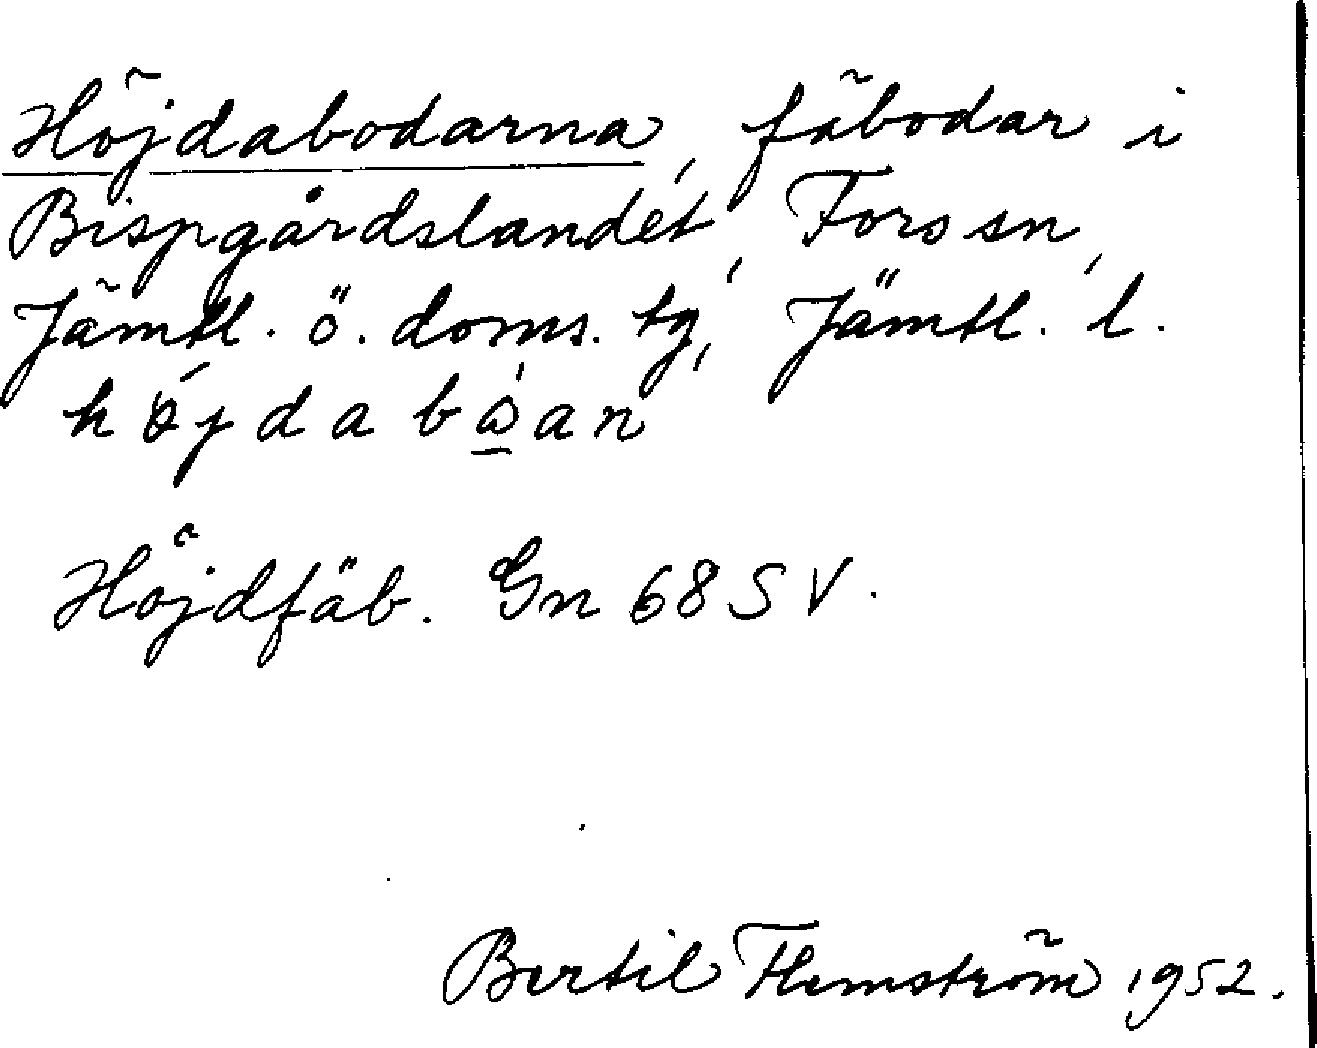 Höjdabodarna, fäbodar i
Bispgårdslandet, Fors sn,
Jämtl. ö. doms. tg, Jämtl. l.
höjdabὼ̲an
Höjdfäb. Gn 68 SV.
Bertil Flemström 1952.